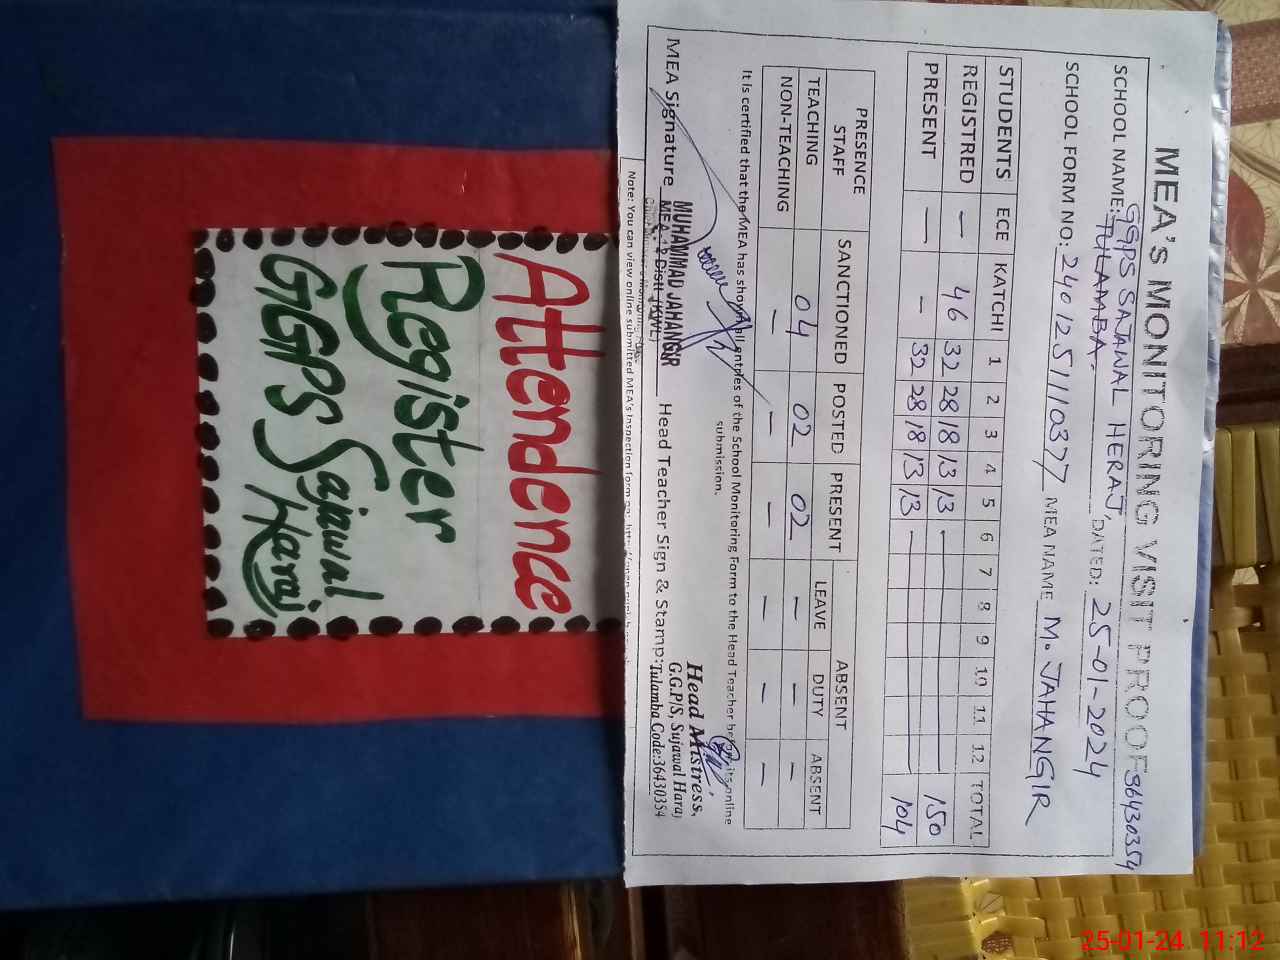 MEA'S MONITORING VISIT PROOF 36430354
SCHOOL NAME: GGPS SAJAWAL HERAJ, TULAMBA. DATED: 25-01-2024
SCHOOL FORM NO: 2401251110377 MEA NAME M. JAHANGIR
STUDENTS ECE KATCHI 1 2 3 4 5 6 7 8 9 10 11 12 TOTAL
REGISTRED — 46 32 28 18 13 13 — 150
PRESENT — — 32 28 18 13 13 — 104
PRESENCE STAFF SANCTIONED POSTED PRESENT ABSENT
LEAVE DUTY ABSENT
TEACHING 04 02 02 — — —
NON-TEACHING — — — — — —
It is certified that the MEA has shown all entries of the School Monitoring Form to the Head Teacher before its online
submission.
MEA Signature MUHAMMAD JAHANGIR Head Teacher Sign & Stamp:
Head Mistress,
G.G.P/S, Sujawal Haraj
Tulamba Code:36430354
Note: You can view online submitted MEA's Inspection form on:
Attendence
Register
GGPS Sajawal
Haraj
25-01-24 11:12